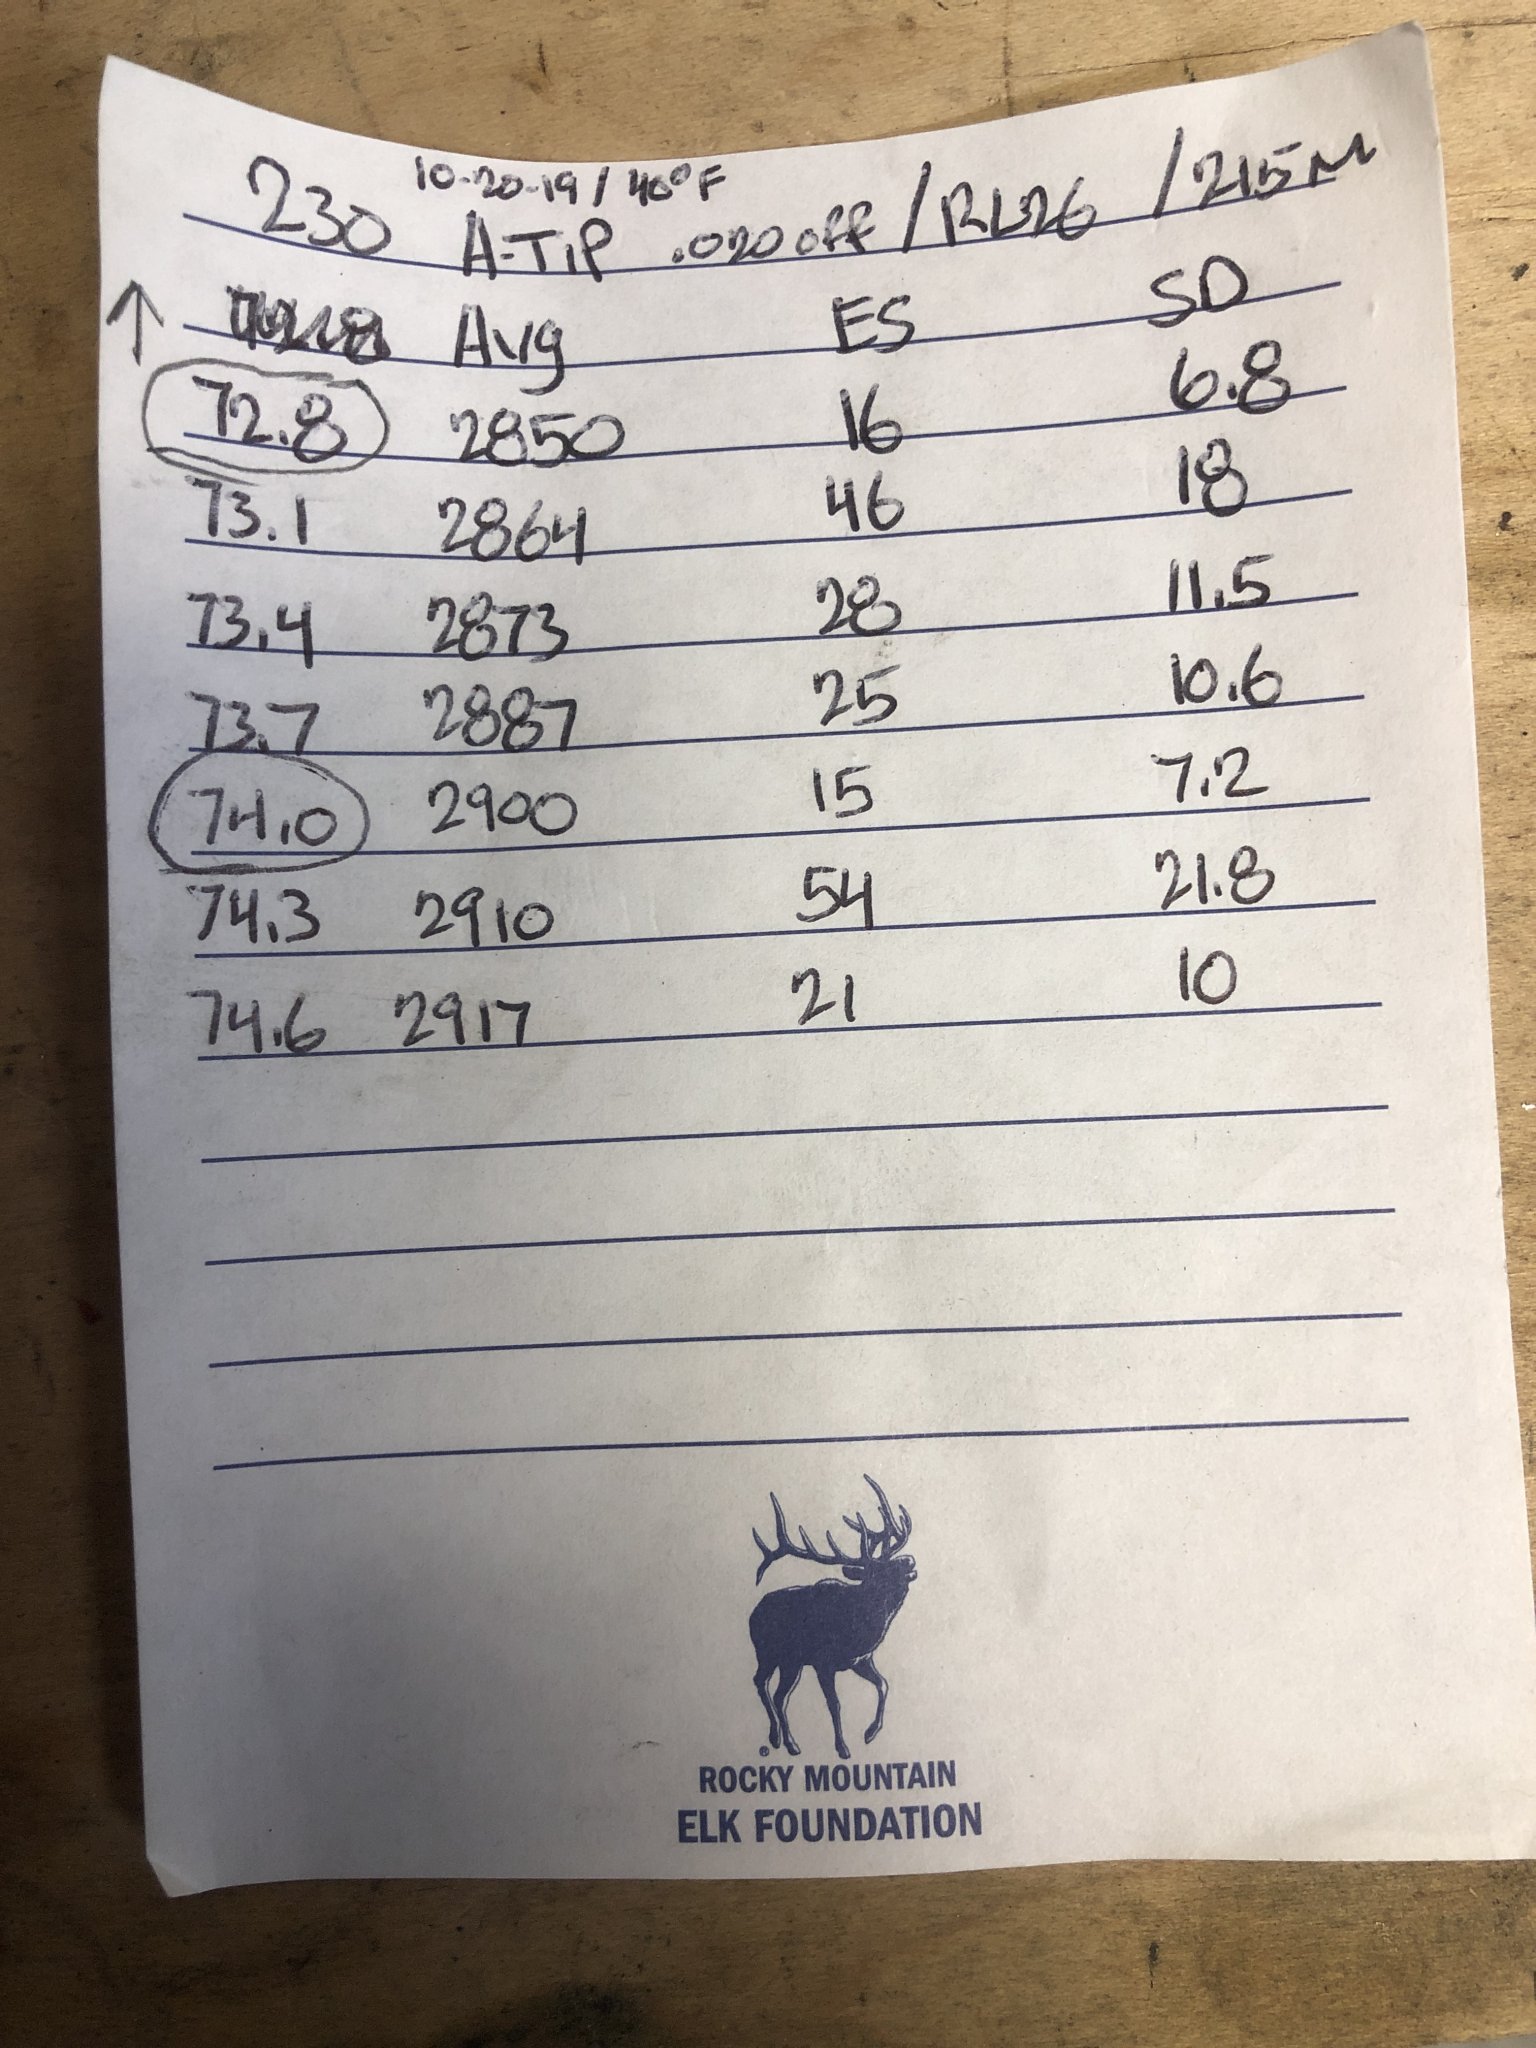 10-20-19 / 40°F
230 A-TiP .020 off / RL26 / 215M
Avg ES SD
72.8 2850 16 6.8
73.1 2864 46 18
73.4 2873 28 11.5
73.7 2887 25 10.6
74.0 2900 15 7.2
74.3 2910 54 21.8
74.6 2917 21 10
ROCKY MOUNTAIN
ELK FOUNDATION